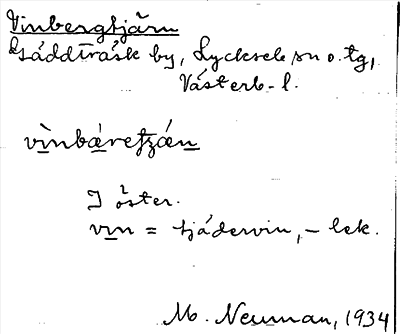 Vinbergtjärn
Gäddträsk by, Lycksele sn o. tg,
Västerb. l.
vinbäretjän
I öster.
vin = tjädervin, - lek.
M. Neuman, 1934